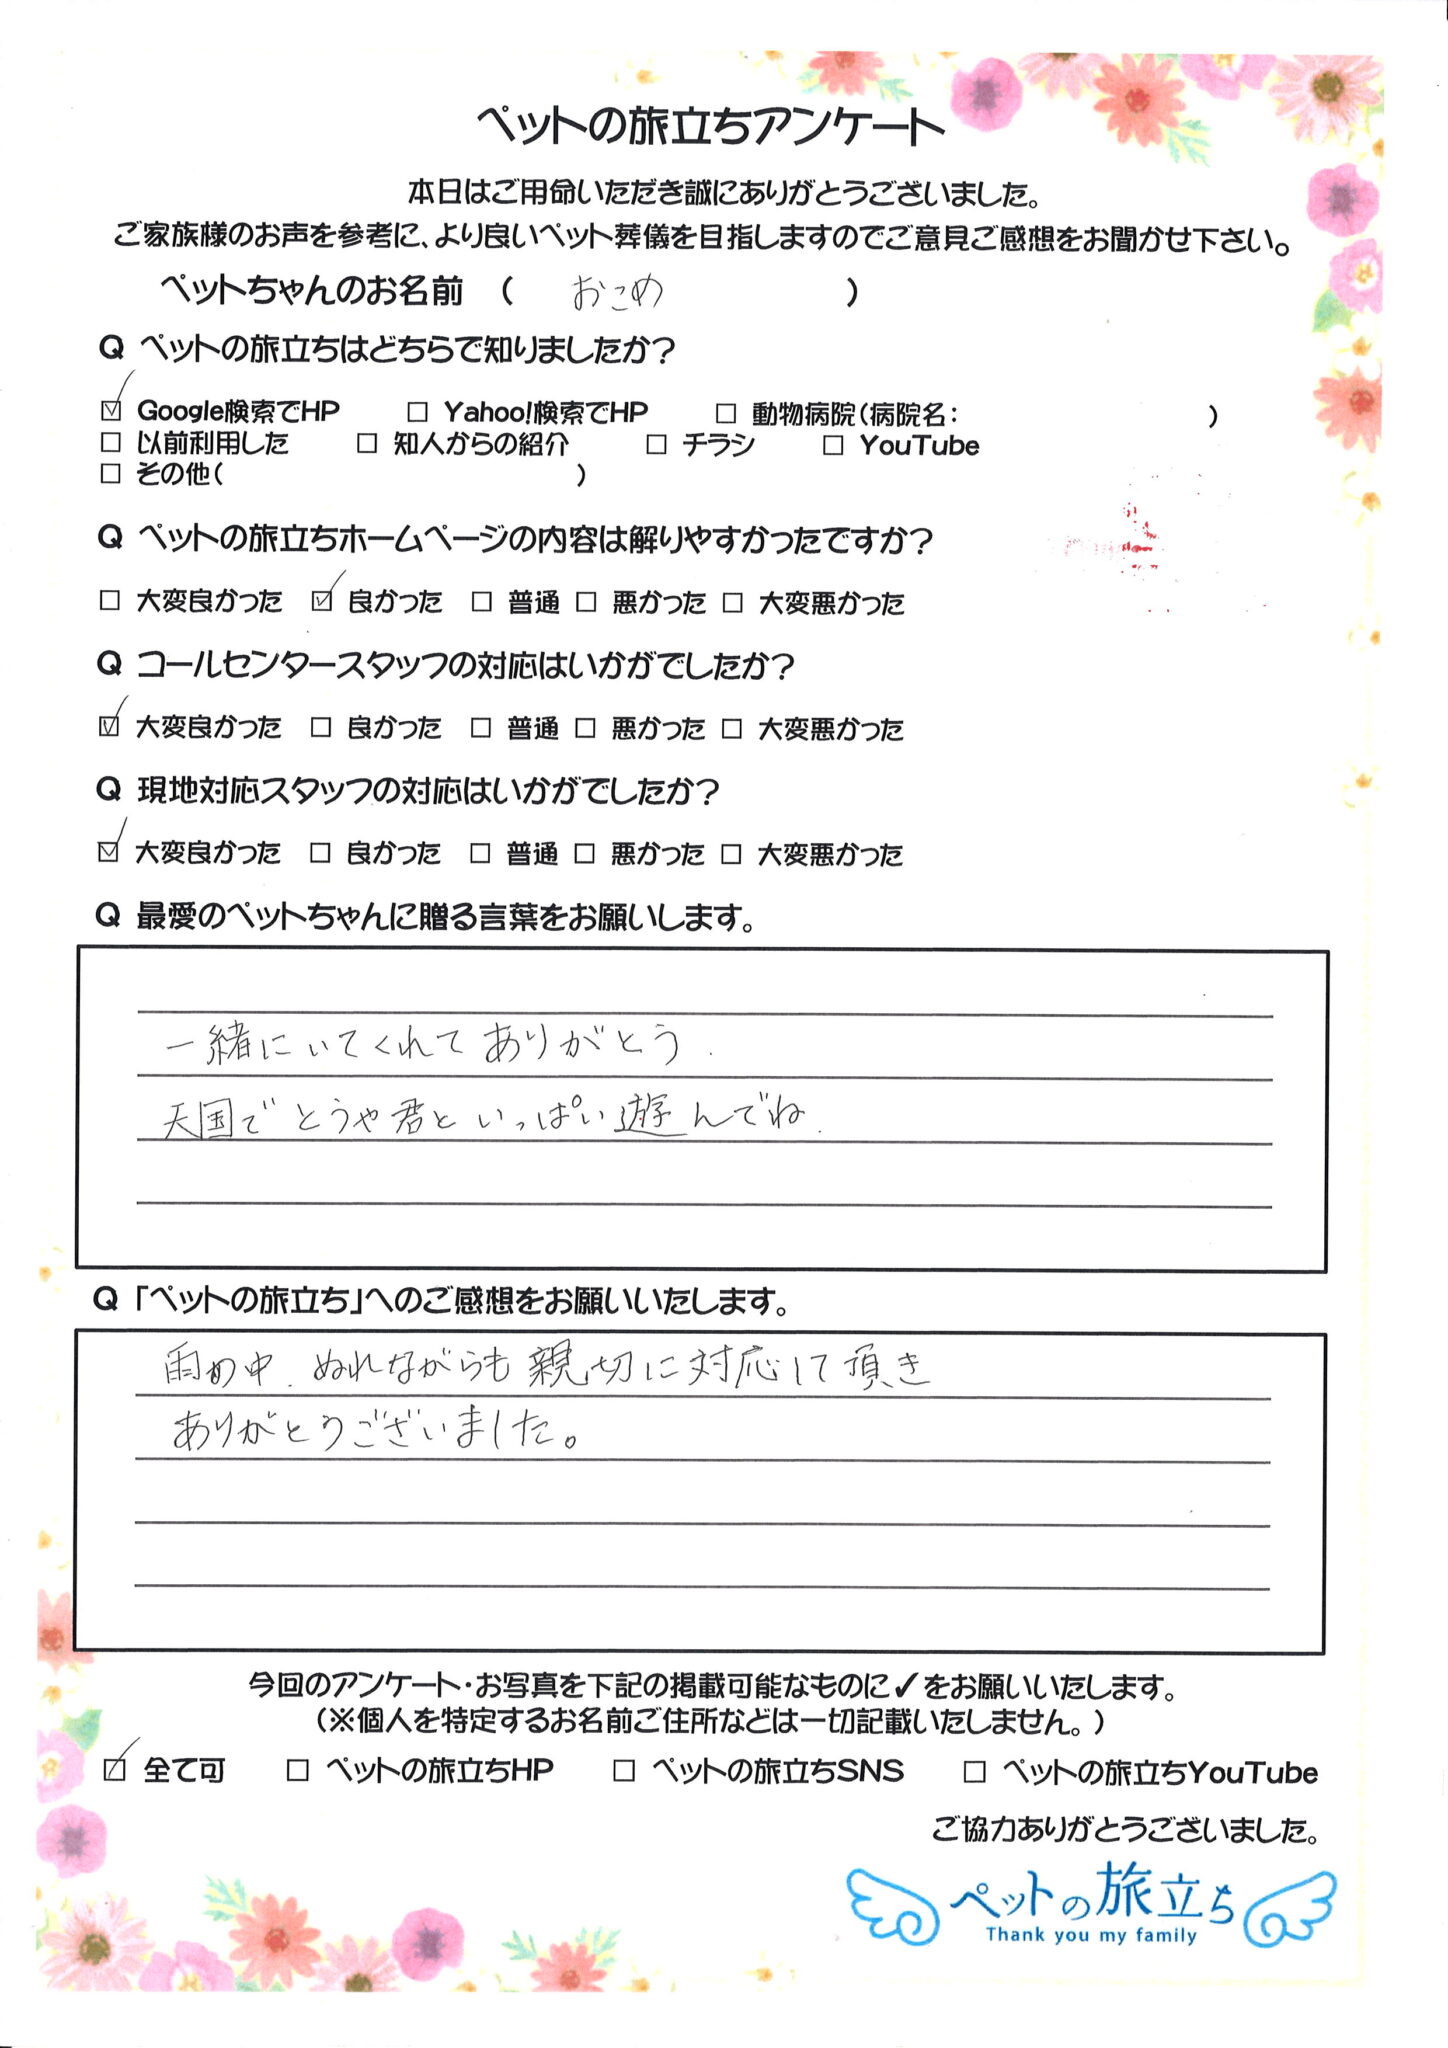 ペットの旅立ちアンケート
本日はご用命いただき誠にありがとうございました。
ご家族様のお声を参考に、より良いペット葬儀を目指しますのでご意見ご感想をお聞かせ下さい。
ペットちゃんのお名前 ( おこめ )
Q ペットの旅立ちはどちらで知りましたか?
☑ Google検索でHP □ Yahoo!検索でHP □ 動物病院(病院名: )
□ 以前利用した □ 知人からの紹介 □ チラシ □ YouTube
□ その他( )
Q ペットの旅立ちホームページの内容は解りやすかったですか?
□ 大変良かった ☑ 良かった □ 普通 □ 悪かった □ 大変悪かった
Q コールセンタースタッフの対応はいかがでしたか?
☑ 大変良かった □ 良かった □ 普通 □ 悪かった □ 大変悪かった
Q 現地対応スタッフの対応はいかがでしたか?
☑ 大変良かった □ 良かった □ 普通 □ 悪かった □ 大変悪かった
Q 最愛のペットちゃんに贈る言葉をお願いします。
一緒にいてくれてありがとう.
天国でとうや君といっぱい遊んでね.
Q 「ペットの旅立ち」へのご感想をお願いいたします。
雨の中、ぬれながらも親切に対応して頂き
ありがとうございました。
今回のアンケート・お写真を下記の掲載可能なものに✓をお願いいたします。
(※個人を特定するお名前ご住所などは一切記載いたしません。)
☑ 全て可 □ ペットの旅立ちHP □ ペットの旅立ちSNS □ ペットの旅立ちYouTube
ご協力ありがとうございました。
ペットの旅立ち
Thank you my family